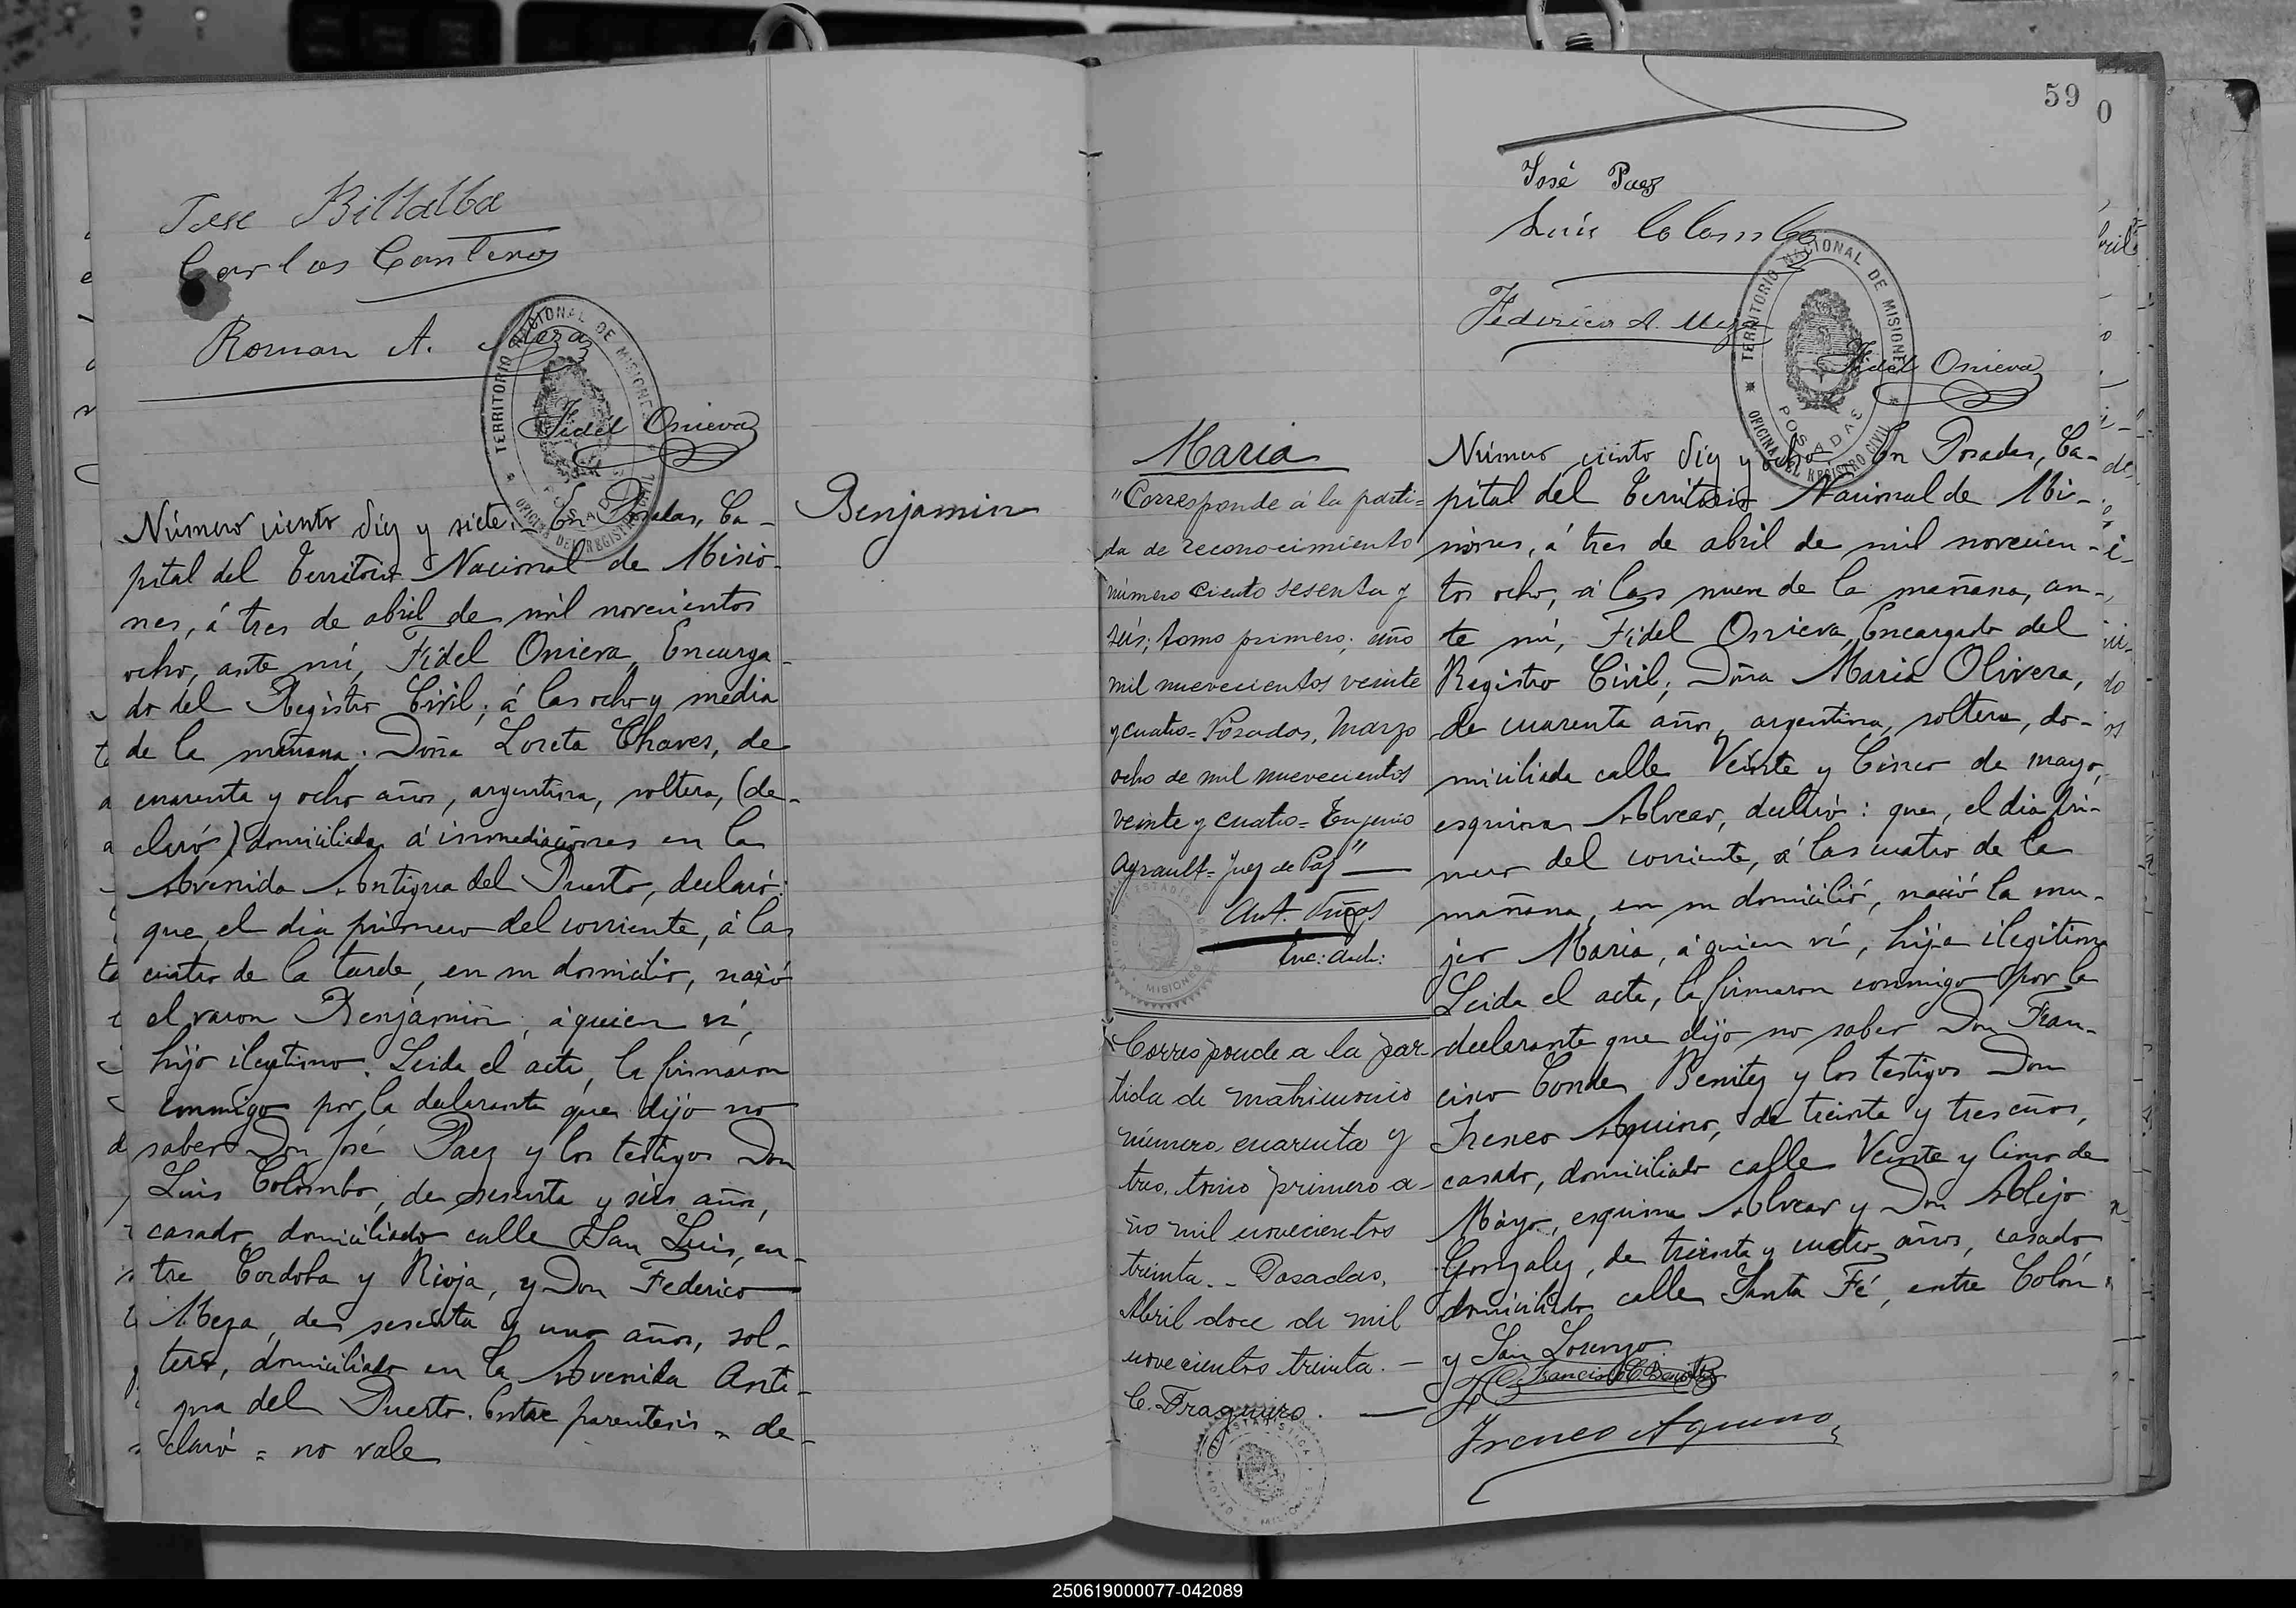 Jose Billalba
Carlos Canteros
Roman A. Mera
TERRITORIO NACIONAL DE MISIONES
OFICINA DEL REGISTRO CIVIL
POSADAS
Fidel Onieva
Número ciento diez y siete. En Posadas, Ca-
pital del Territorio Nacional de Misio-
nes, á tres de abril de mil novecientos
ocho, ante mí, Fidel Onieva, Encarga-
do del Registro Civil; á las ocho y media
de la mañana; Doña Loreta Chaves, de
cuarenta y ocho años, argentina, soltera, (de-
claró) domiciliada á inmediaciones en la
Avenida Antigua del Puerto, declaró:
que, el dia primero del corriente, á las
cuatro de la tarde, en su domicilio, nació
el varon Benjamin, á quien ví,
hijo ilegitimo. Leida el acta, la firmaron
conmigo por la declarante que dijo no
saber Don José Paez y los testigos Don
Luis Colombo, de sesenta y seis años,
casado, domiciliado calle San Luis, en-
tre Cordoba y Rioja, y Don Federico
Meza, de sesenta y uno años, sol-
tero, domiciliado en la Avenida Anti-
gua del Puerto. Entre parentesis = de-
claró = no vale
Benjamin
59
José Paez
Luis Colombo
Federico A. Meza
TERRITORIO NACIONAL DE MISIONES
OFICINA DEL REGISTRO CIVIL
POSADAS
Fidel Onieva
Maria
"Corresponde á la parti=
da de reconocimiento
número ciento sesenta y
seis; tomo primero; año
mil nuevecientos veinte
y cuatro= Posadas, Marzo
ocho de mil nuevecientos
veinte y cuatro= Eugenio
Agrault= Juez de Paz"
Enc: Arch:
MISIONES
Corresponde a la par-
tida de matrimonio
número cuarenta y
tres, tomo primero a-
ño mil novecientos
treinta. - Posadas,
Abril doce de mil
novecientos treinta. -
C. Fragueiro. -
ESTADISTICA
MISIONES
Número ciento diez y ocho. En Posadas, Ca-
pital del Territorio Nacional de Mi-
siones, á tres de abril de mil novecien-
tos ocho, á las nueve de la mañana, an-
te mí, Fidel Onieva, Encargado del
Registro Civil; Doña Maria Olivera,
de cuarenta años, argentina, soltera, do-
miciliada calle Veinte y Cinco de mayo,
esquina Alvear, declaró: que, el dia pri-
mero del corriente, á las cuatro de la
mañana, en su domicilió, nació la mu-
jer Maria, á quien ví, hija ilegitima
Leida el acta, la firmaron conmigo por la
declarante que dijo no saber Don Fran-
cisco Conde Benitez y los testigos Don
Ireneo Aquino, de treinta y tres años,
casado, domiciliado calle Veinte y Cinco de
Mayo, esquina Alvear y Don Alejo
Gonzalez, de treinta y cuatro años, casado
domiciliado calle Santa Fé, entre Colón
y San Lorenzo.
Francisco C. Benitez
Ireneo Aquino
250619000077-042089